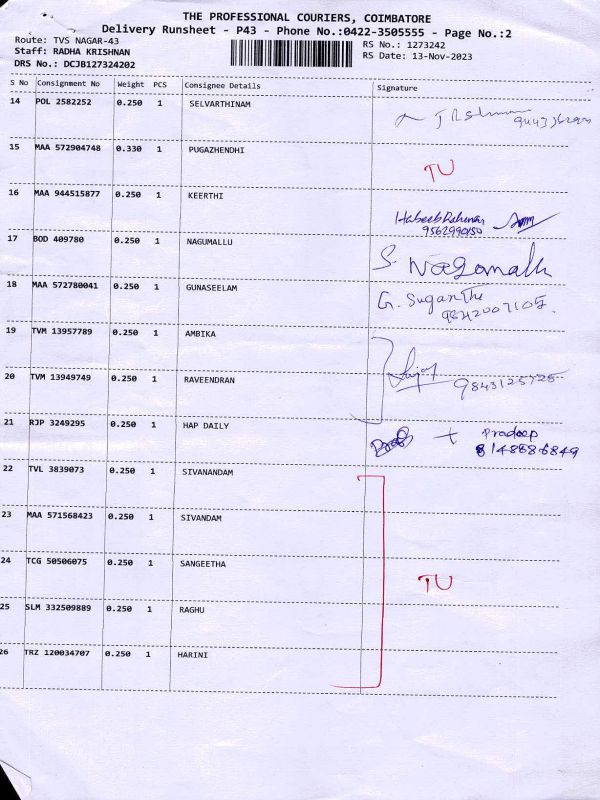 THE PROFESSIONAL COURIERS, COIMBATORE
Delivery Runsheet - P43 - Phone No.:0422-3505555 - Page No.:2
Route: TVS NAGAR-43
Staff: RADHA KRISHNAN
DRS No.: DCJB127324202
RS No.: 1273242
RS Date: 13-Nov-2023
S No Consignment No Weight PCS Consignee Details Signature
14 POL 2582252 0.250 1 SELVARTHINAM
15 MAA 572904748 0.330 1 PUGAZHENDHI TU
16 MAA 944515877 0.250 1 KEERTHI
Habeeb Rahman
9562990150
17 BOD 409780 0.250 1 NAGUMALLU
S. Nagomallu
18 MAA 572780041 0.250 1 GUNASEELAM
G. Suganthi
9842007105.
19 TVM 13957789 0.250 1 AMBIKA
20 TVM 13949749 0.250 1 RAVEENDRAN
9843125725
21 RJP 3249295 0.250 1 HAP DAILY
Pradeep
8148886849
22 TVL 3839073 0.250 1 SIVANANDAM
23 MAA 571568423 0.250 1 SIVANDAM
24 TCG 50506075 0.250 1 SANGEETHA
TU
25 SLM 332509889 0.250 1 RAGHU
26 TRZ 120034707 0.250 1 HARINI